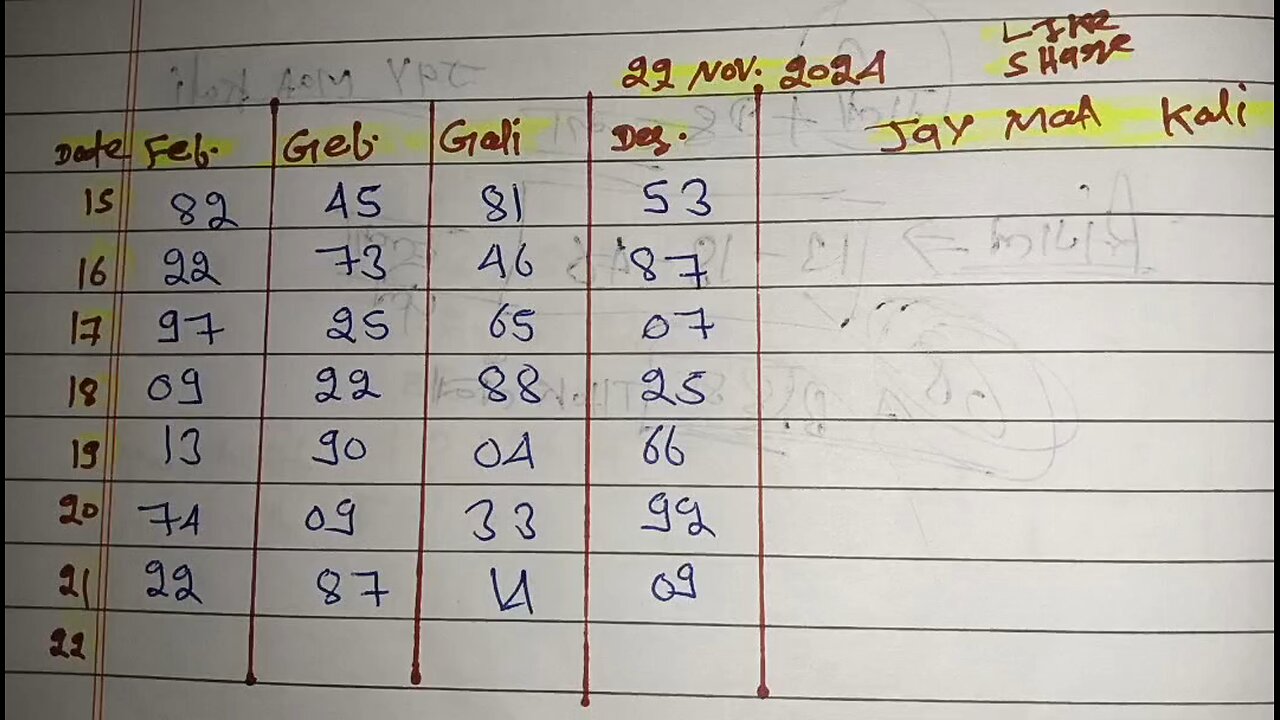 LIKE
SHare
22 Nov. 2024
Date Feb. Geb. Gali Des. Jay MaA Kali
15 82 45 81 53
16 22 73 46 87
17 97 25 65 07
18 09 22 88 25
19 13 90 04 66
20 74 09 33 92
21 22 87 14 09
22